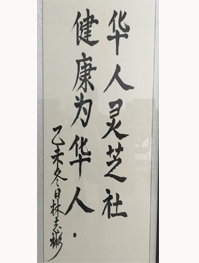 华人灵芝社
健康为华人.
乙未冬日林志彬